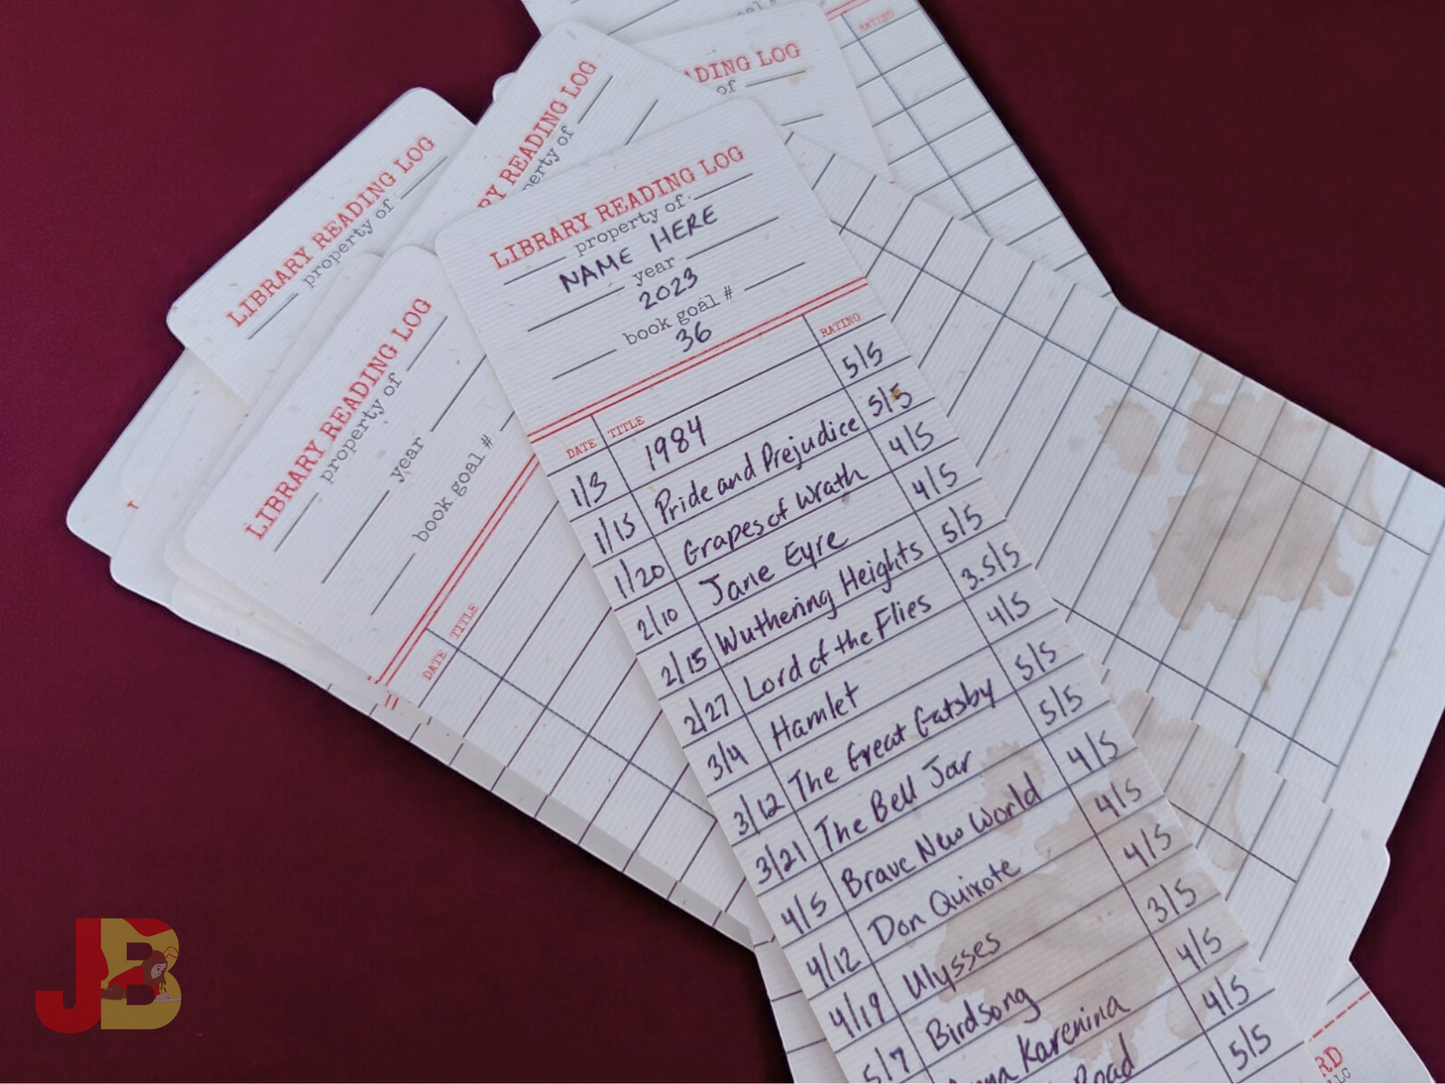 RATING
LIBRARY READING LOG
property of
RY READING LOG
ADING LOG
of
LIBRARY READING LOG
property of
year
book goal #
DATE TITLE
LIBRARY READING LOG
property of
NAME HERE
year
2023
book goal #
36
DATE TITLE RATING
1/3 1984 5/5
1/15 Pride and Prejudice 5/5
1/20 Grapes of Wrath 4/5
2/10 Jane Eyre 4/5
2/15 Wuthering Heights 5/5
2/27 Lord of the Flies 3.5/5
3/4 Hamlet 4/5
3/12 The Great Gatsby 5/5
3/21 The Bell Jar 5/5
4/5 Brave New World 4/5
4/12 Don Quixote 4/5
4/19 Ulysses 4/5
5/7 Birdsong 3/5
Karenina 4/5
Road 4/5
5/5
RD
LLC
JB